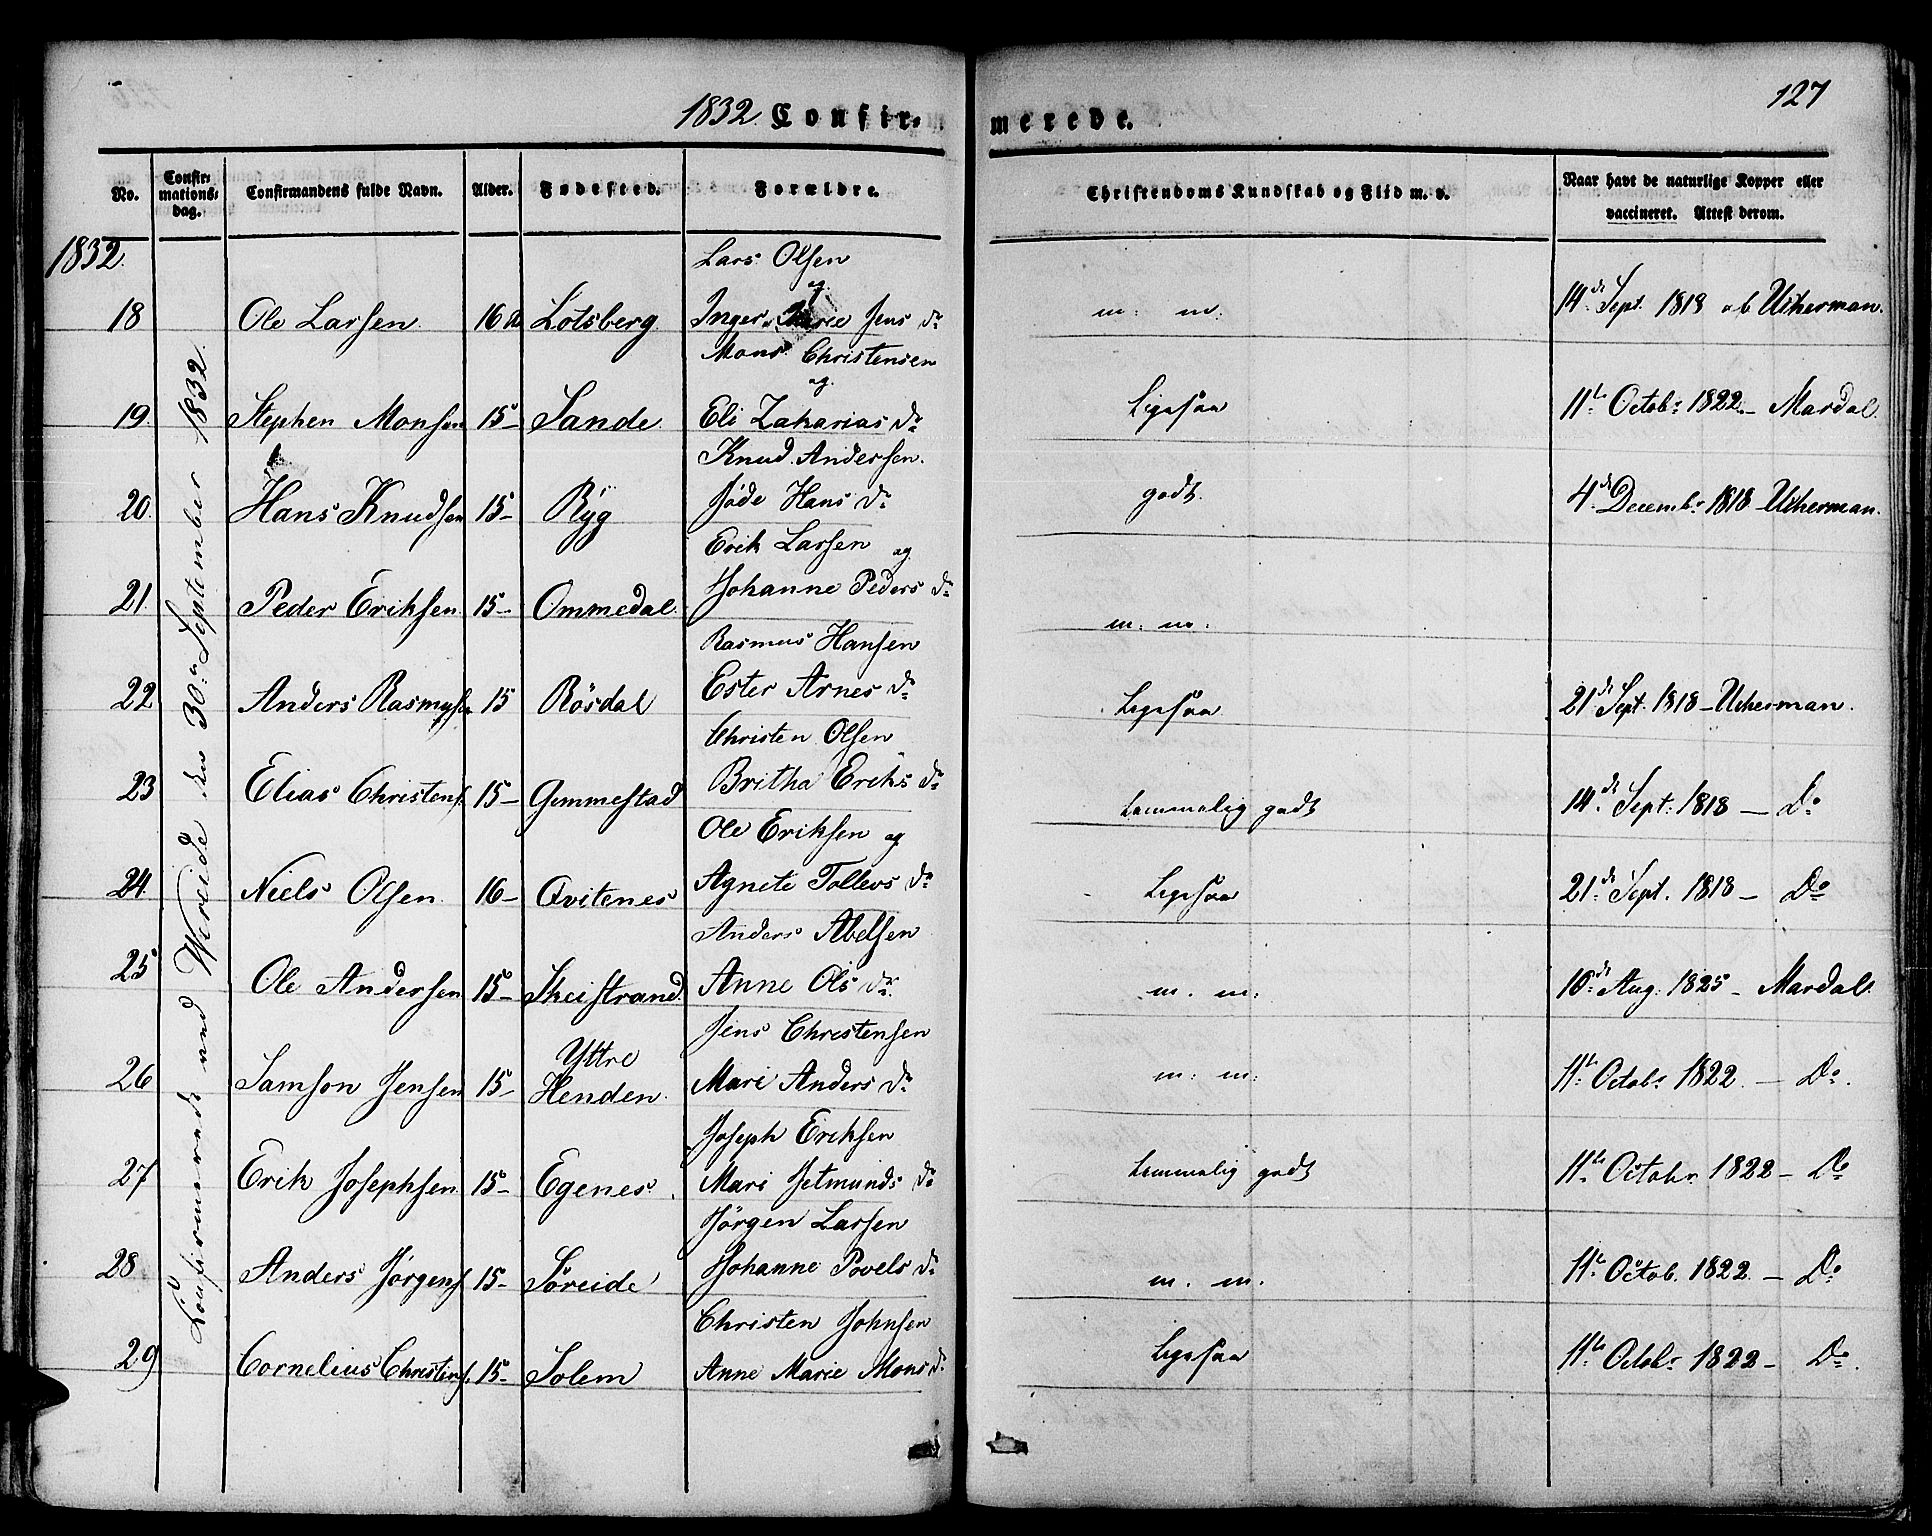 127
1832. Confir- merede.
No. Confir- mations- dag. Confirmandens fulde Navn. Alder. Fødested. Forældre. Christendoms Kundskab og Flid m. v. Naar havt de naturlige Kopper eller vaccineret. Attest derom.
1832.
Confirmerede ved Wereide den 30te September 1832.
Lars Olsen
og
18 Ole Larsen 16 Lotsberg Inger Marie Jens Dr m: m. 14de Sept. 1818 af Ucherman.
Mons Christensen
og
19. Stephen Monsen 15- Sande Eli Zakarias Dr Ligesaa 11te Octobr 1822 - Mardal
Knud Andersen.
20. Hans Knudsen 15- Ryg Jøde Hans Dr godt. 4de Decembr 1818 - Ucherman.
Erik Larsen og
21. Peder Eriksen 15- Ommedal. Johanne Peders Dr m: m.
Rasmus Hansen
22 Anders Rasmusen 15 Rösdal Ester Arnes Dr Ligesaa 21de Sept. 1818 - Ucherman.
Christen Olsen
23 Elias Christens. 15- Gemmestad Britha Eriks Dr temmelig godt 14de Sept: 1818 - Do
Ole Eriksen og
24. Niels Olsen 16- Qvitenes Agnete Tollevs Dr Ligesaa 21de Sept. 1818 - Do
Anders Abelsen
25 Ole Andersen 15- Skeistrand Anne Ols Dr m. m: 10de Aug: 1825 - Mardal.
Jens Christensen
Yttre
26 Samson Jensen 15- Henden. Mari Anders Dr m: m: 11te Octobr 1822. - Do.
Joseph Eriksen
27 Erik Josephsen 15- Egenes. Mari Jetmunds Dr temmelig godt 11te Octobr 1822 - Do
Jörgen Larsen
28 Anders Jörgens. 15- Söreide Johanne Povels Dr m. m. 11te Octob. 1822. - Do
Christen Johnsen
29 Cornelius Christens. 15- Solem Anne Marie Mons Dr Ligesaa 11te Octobr 1822 - Do.